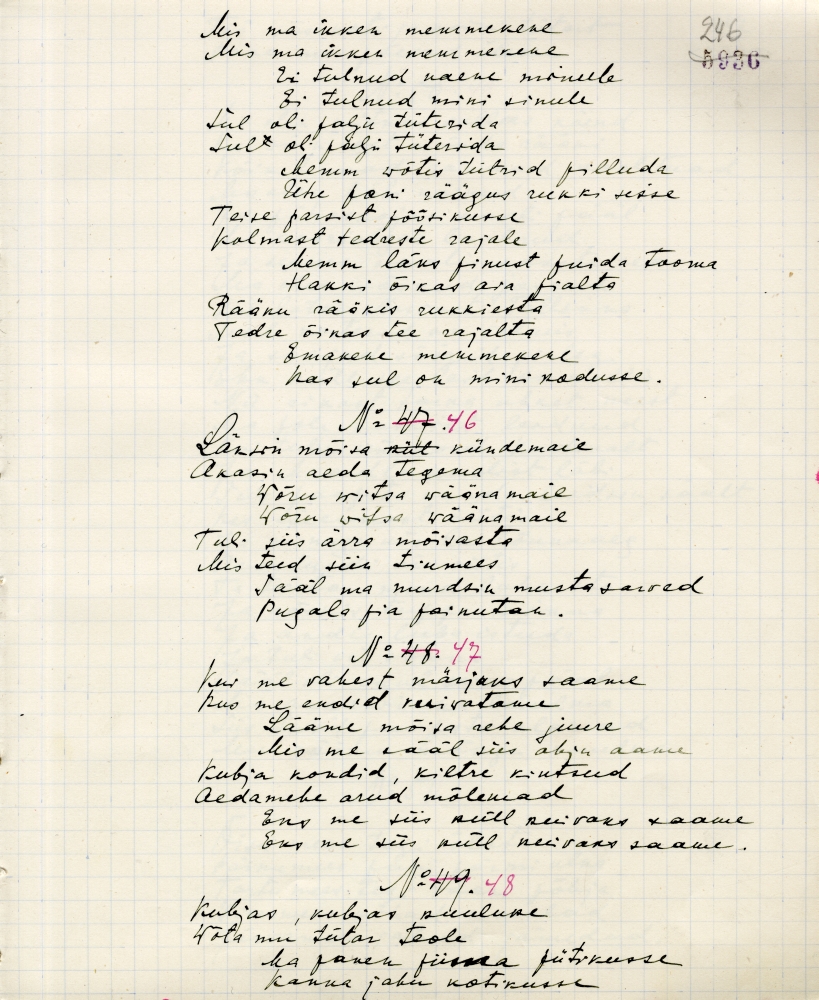 246
5936
Mis ma ikken memmekene
Mis ma ikken memmekene
Ei tulnud naene minule
Ei tulnud mini sinule
Sul oli palju tüterida
Sul oli palju tüterida
Memm wõtis tütrid pilluda
Ühe pani räägus rukki sisse
Teise parsist põõsikusse
Kolmast tedreste rajale
Memm läks pinust puida tooma
Hakki õikas aia pialta
Räänu rääkis rukkiesta
Tedre õikas tee rajalta
Emakene memmekene
Kas sul on mini kodusse.
№ 47. 46
Läksin mõisa küll kündemaie
Akasin aeda tegema
Wõru witsa wäänamaie
Wõru witsa wäänamaie
Tuli siis ärra mõisasta
Mis teed siin tiumees
Jääl ma murdsin musta sarved
Pugala pia painutan.
№ 48. 47
Kui me vahest märjaks saame
Kus me endid kuivatame
Lääme mõisa rehe juure
Mis me sääl siis ahju aame
Kubja kondid, kiltre kintsud
Aedamehe arud mõlemad
Eks me siis küll kuivaks saame
Eks me siis küll kuivaks saame.
№ 49. 48
Kubjas, kubjas kuuluke
Wõta mu tütar teole
Ma panen piima pütikusse
Kanna jahu kotikusse